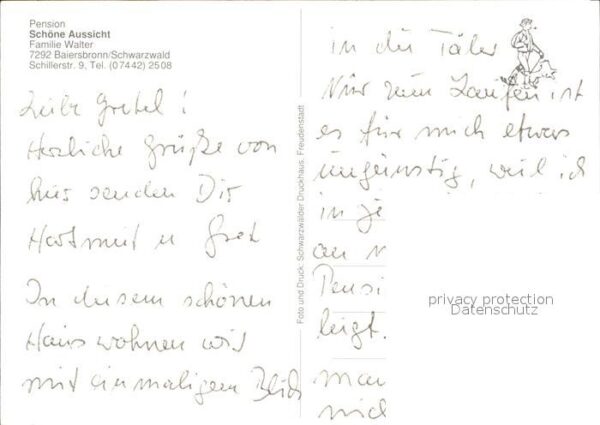 Pension
Schöne Aussicht
Familie Walter
7292 Baiersbronn/Schwarzwald
Schillerstr. 9, Tel. (07442) 2508
Liebe Gretel!
Herzliche Grüße von
hier senden Dir
Hartmut u Gret
In diesem schönen
Haus wohnen wir
mit einmaligem Blick
Foto und Druck: Schwarzwälder Druckhaus, Freudenstadt
in die Täler
Nur zum Laufen ist
es für mich etwas
ungünstig, weil ich
in je
an
Pensi
leigt.
man
mich
privacy protection
Datenschutz